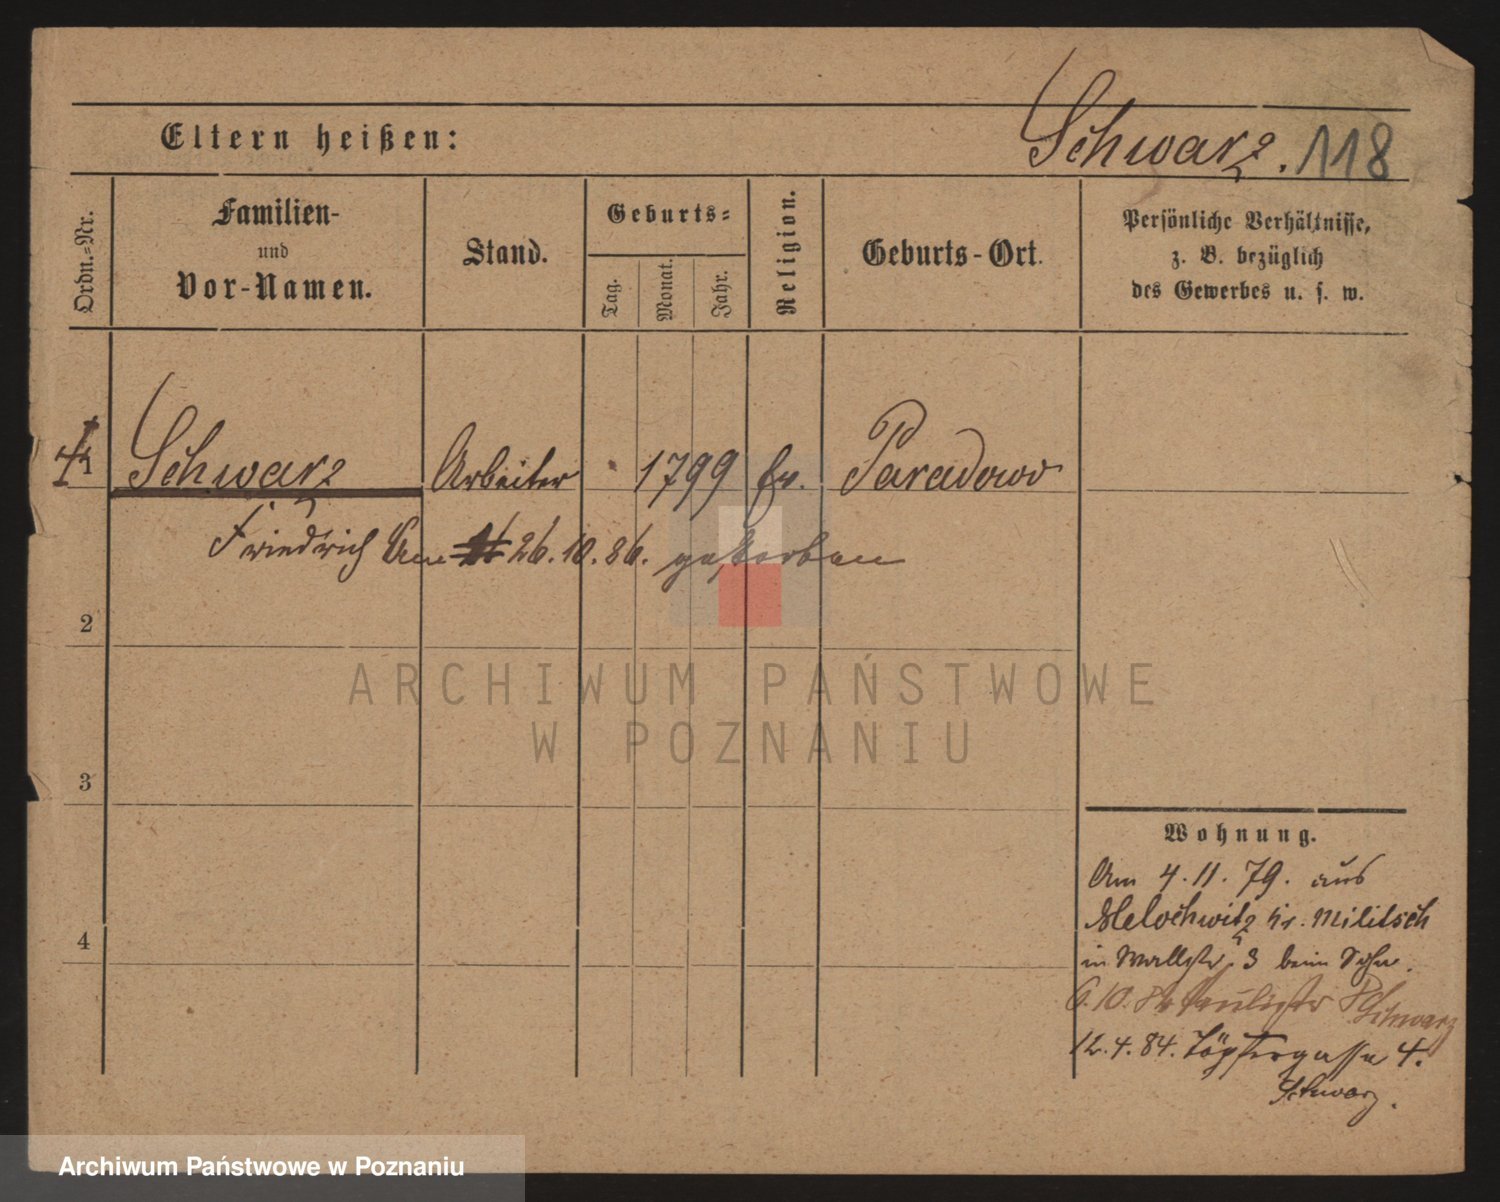 Eltern heißen:
Schwarz. 118
Ordn.=Nr.
Familien-
und
Vor-Namen.
Stand.
Geburts=
Tag.
Monat.
Jahr.
Religion.
Geburts-Ort.
Persönliche Verhältnisse,
z. B. bezüglich
des Gewerbes u. s. w.
1 Schwarz Arbeiter 1799 ev. Paradowo
Friedrich Am 26.10.86. gestorben
2
3
4
Wohnung.
Am 4.11.79. aus
Melochwitz Kr. Militsch
in Wallstr. 3 beim Sohne.
6.10. Schwarz
12.4.84. Töpfergasse 4.
Schwarz.
ARCHIWUM PAŃSTWOWE
W POZNANIU
Archiwum Państwowe w Poznaniu